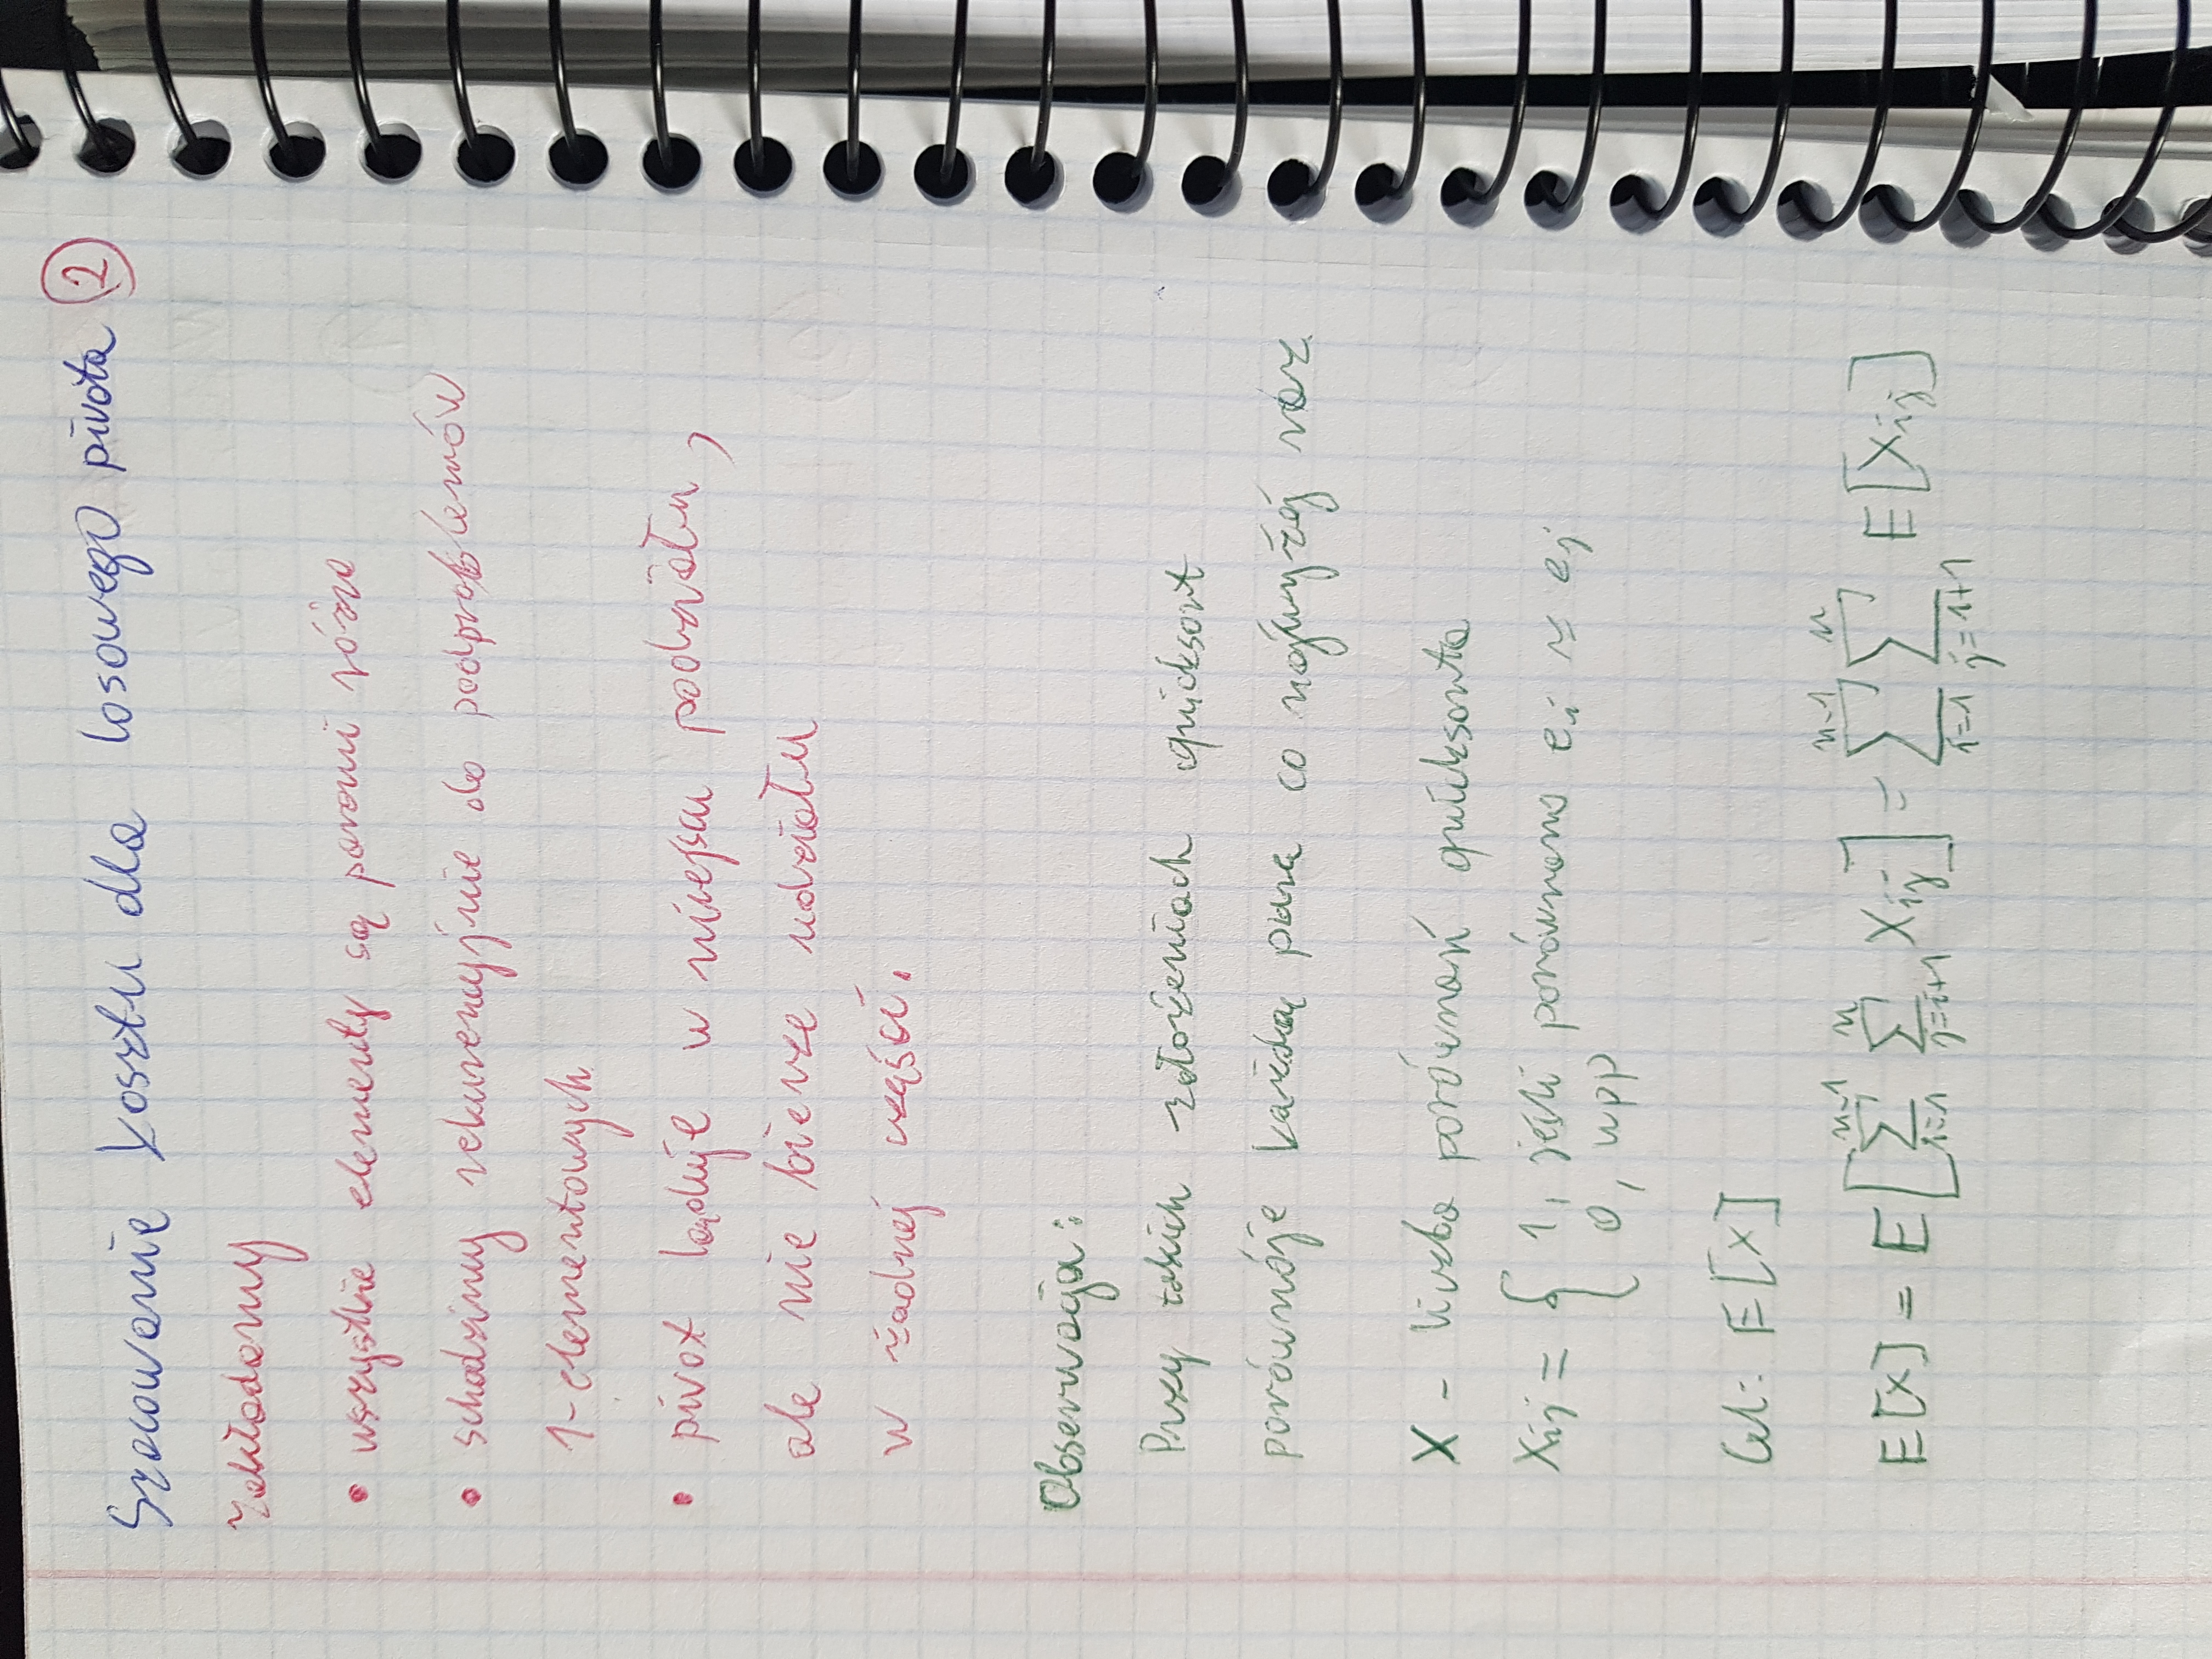 Szacowanie kosztu dla losowego pivota 2
Zakładamy
• wszystkie elementy są parami różne
• schodzimy rekurencyjnie do podproblemów
1-elementowych
• pivot ląduje w miejscu podziału,
ale nie bierze udziału
w żadnej części.
Obserwacja:
Przy takich założeniach quicksort
porównóje każdą parę co najwyżej raz
X - liczba porównań quicksorta
Xij = { 1, jeśli porównano ei z ej
0, wpp
Cel: E[X]
E[X] = E[∑_{i=1}^{n-1} ∑_{j=i+1}^{n} Xij] = ∑_{i=1}^{n-1} ∑_{j=i+1}^{n} E[Xij]